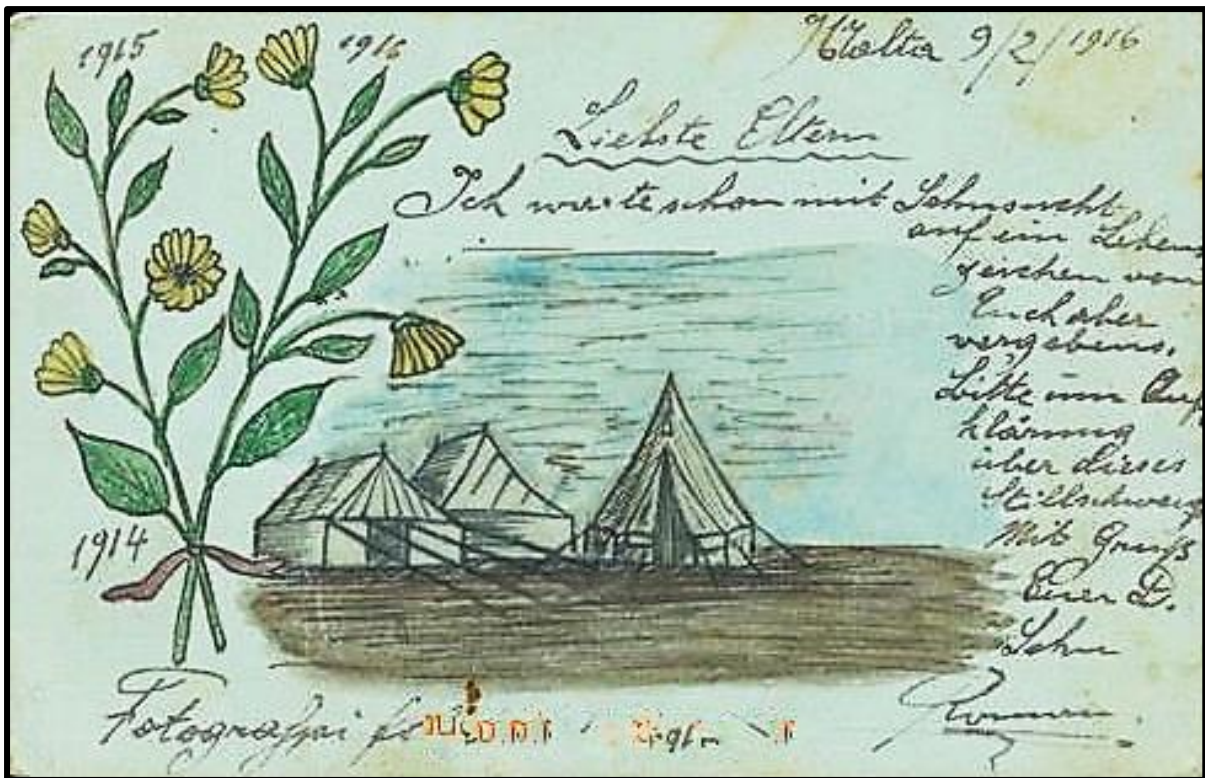 1915
1916
Malta 9/2/1916
Liebste Eltern
Ich warte schon mit Sehnsucht
auf ein Lebens
zeichen von
Euch aber
vergebens.
bitte um Auf
klärung
über dieses
Stillschweig
Mit Gruß
Euer D.
Sohn
Roman
1914
Fotografpi